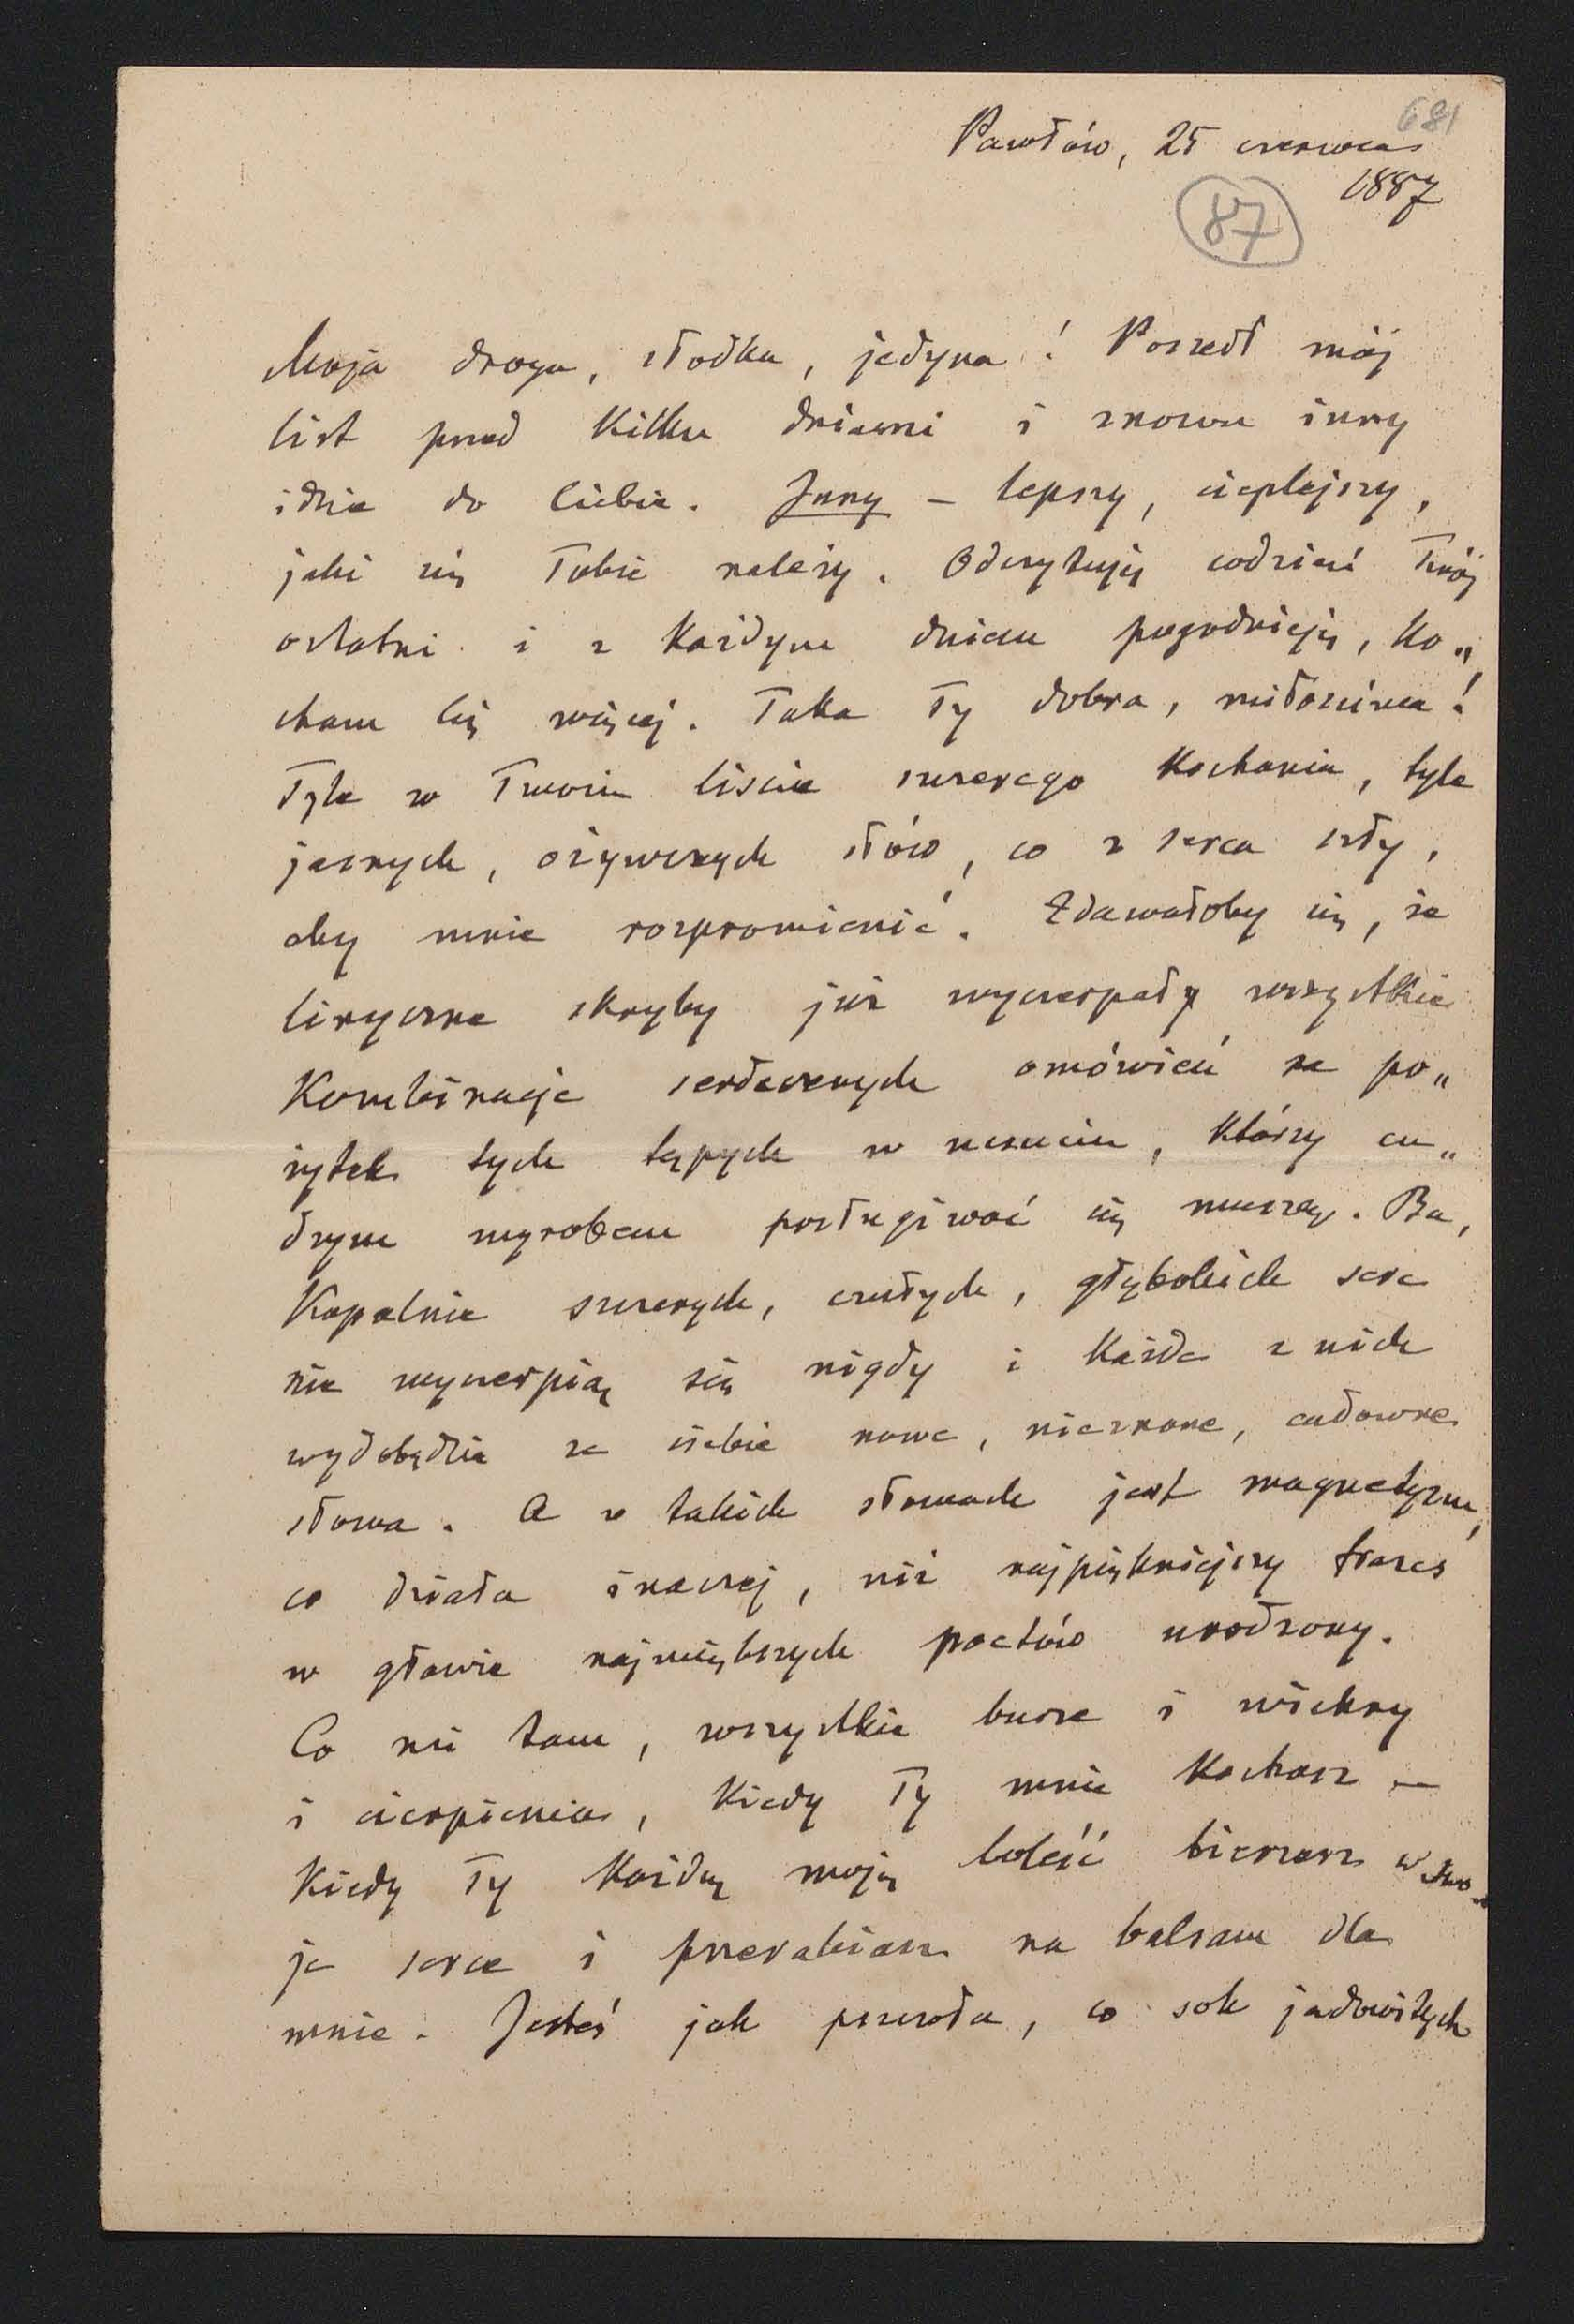 681
Pawłów, 25 czerwca
1887
87
Moja droga, słodka, jedyna! Poszedł mój
list przed kilku dniami i znowu inny
idzie do Ciebie. Inny – lepszy, cieplejszy,
jaki się Tobie należy. Odczytuję codzień Twój
ostatni i z każdym dniem pogodnieję, ko„
cham Cię więcej. Taka Ty dobra, miłośćiwa!
Tyle w Twoim liście szczerego kochania, tyle
jasnych, ożywczych słów, co z serca szły,
aby mnie rozpromienić. Zdawałoby się, że
liryczne skryby już wyczerpały wszystkie
kombinacje serdecznych omówień na po„
żytek tych tępych w uczuciu, którzy cu„
dzym wyrobem posługiwać się muszą. Ba,
kopalnie szczerych, czułych, głębokich serc
nie wyczerpią się nigdy i każda z nich
wydobędzie ze siebie nowe, nieznane, cudowne
słowa. A w takich słowach jest magnetyzm,
co działa inaczej, niż najpiękniejszy frazes
w głowie największych poetów urodzony.
Co mi tam, wszystkie burze i wichry
i cierpienia, kiedy Ty mnie kochasz –
kiedy Ty każdą moją boleść bierzesz w swo„
je serce i przerabiasz na balsam dla
mnie. Jesteś jak pszczoła, co sok jadowitych